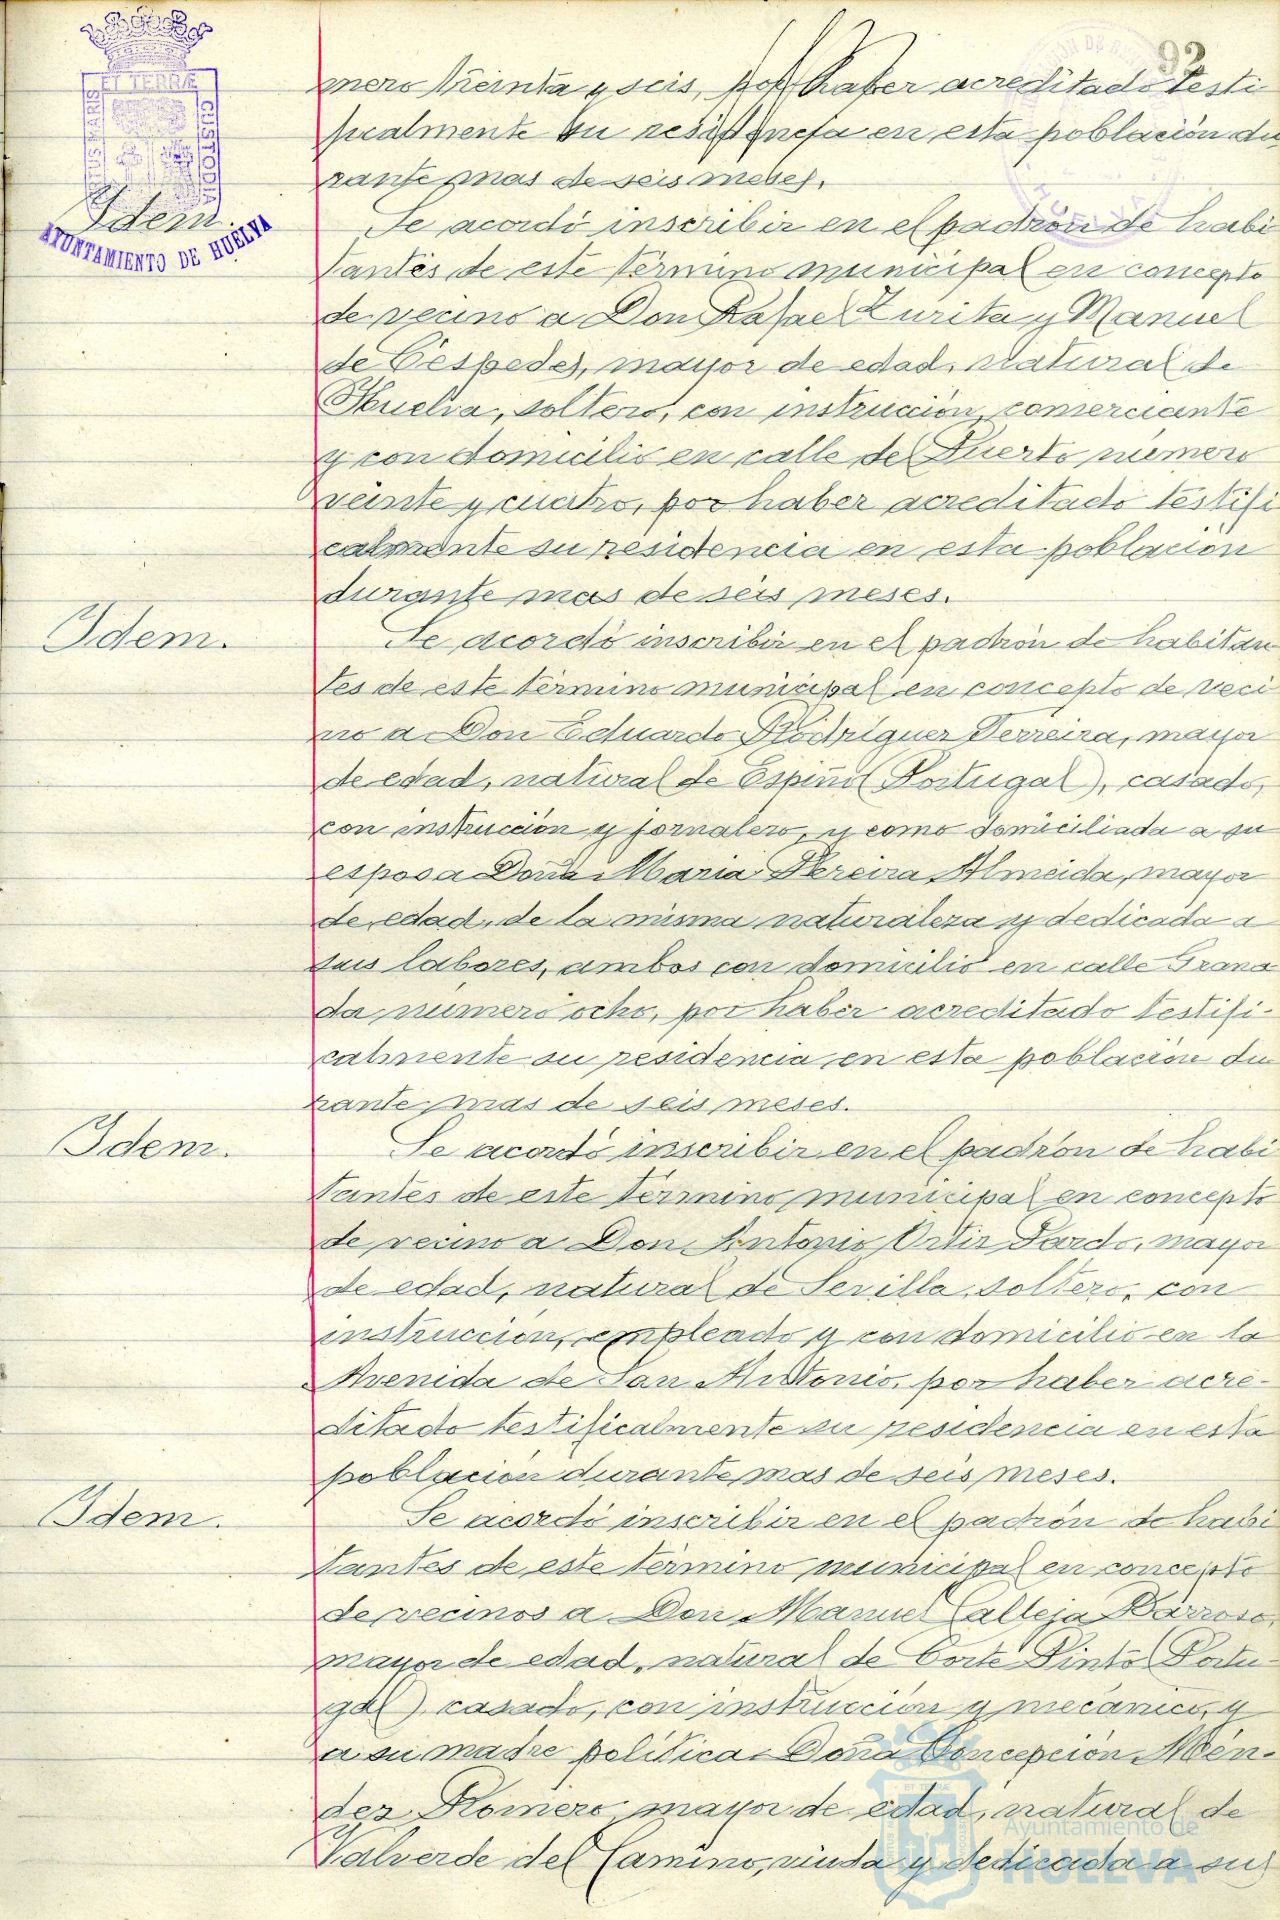 92
ET TERRÆ
CUSTODIA
mero treinta y seis, por haber acreditado testi
ficalmente su residencia en esta población du
rante mas de seis meses.
Idem.
AYUNTAMIENTO DE HUELVA
HUELVA
Se acordó inscribir en el padrón de habi
tantes de este término municipal en concepto
de vecino a Don Rafael Zurita y Manuel
de Céspedes, mayor de edad, natural de
Huelva, soltero, con instrucción, comerciante
y con domicilio en calle del Puerto número
veinte y cuatro, por haber acreditado testifi
calmente su residencia en esta población
durante mas de seis meses.
Idem.
Se acordó inscribir en el padrón de habitan
tes de este término municipal en concepto de veci
no a Don Eduardo Rodríguez Ferreira, mayor
de edad, natural de Espiño (Portugal), casado,
con instrucción y jornalero, y como domiciliada a su
esposa Doña Maria Pereira Almeida, mayor
de edad, de la misma naturaleza y dedicada a
sus labores, ambos con domicilio en calle Grana
da, número ocho, por haber acreditado testifi-
calmente su residencia en esta población du
rante mas de seis meses.
Idem.
Se acordó inscribir en el padrón de habi
tantes de este término municipal en concepto
de vecino a Don Antonio Ortiz Pardo, mayor
de edad, natural de Sevilla, soltero, con
instrucción, empleado y con domicilio en la
Avenida de San Antonio, por haber acre-
ditado testificalmente su residencia en esta
población durante mas de seis meses.
Idem.
Se acordó inscribir en el padrón de habi
tantes de este término municipal en concepto
de vecinos a Don Manuel Calleja Barroso,
mayor de edad, natural de Corte Pinto (Portu-
gal), casado, con instrucción y mecánico, y
a su madre política Doña Concepción Mén-
dez Romero, mayor de edad, natural de
Valverde del Camino, viuda y dedicada a sus
Ayuntamiento de
HUELVA